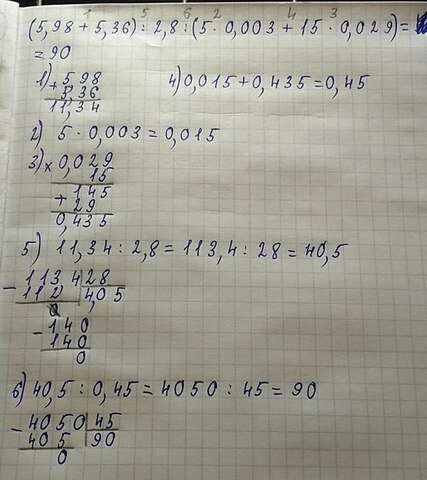 1 5 6 2 4 3
(5,98 + 5,36) : 2,8 : (5 · 0,003 + 15 · 0,029) =
= 90
1) + 5,98
5,36
11,34
4) 0,015 + 0,435 = 0,45
2) 5 · 0,003 = 0,015
3) × 0,029
15
+ 145
29
0,435
5) 11,34 : 2,8 = 113,4 : 28 = 40,5
- 113 4 28
112 4,05
0
- 140
140
0
6) 40,5 : 0,45 = 4050 : 45 = 90
- 4050 45
405 90
0